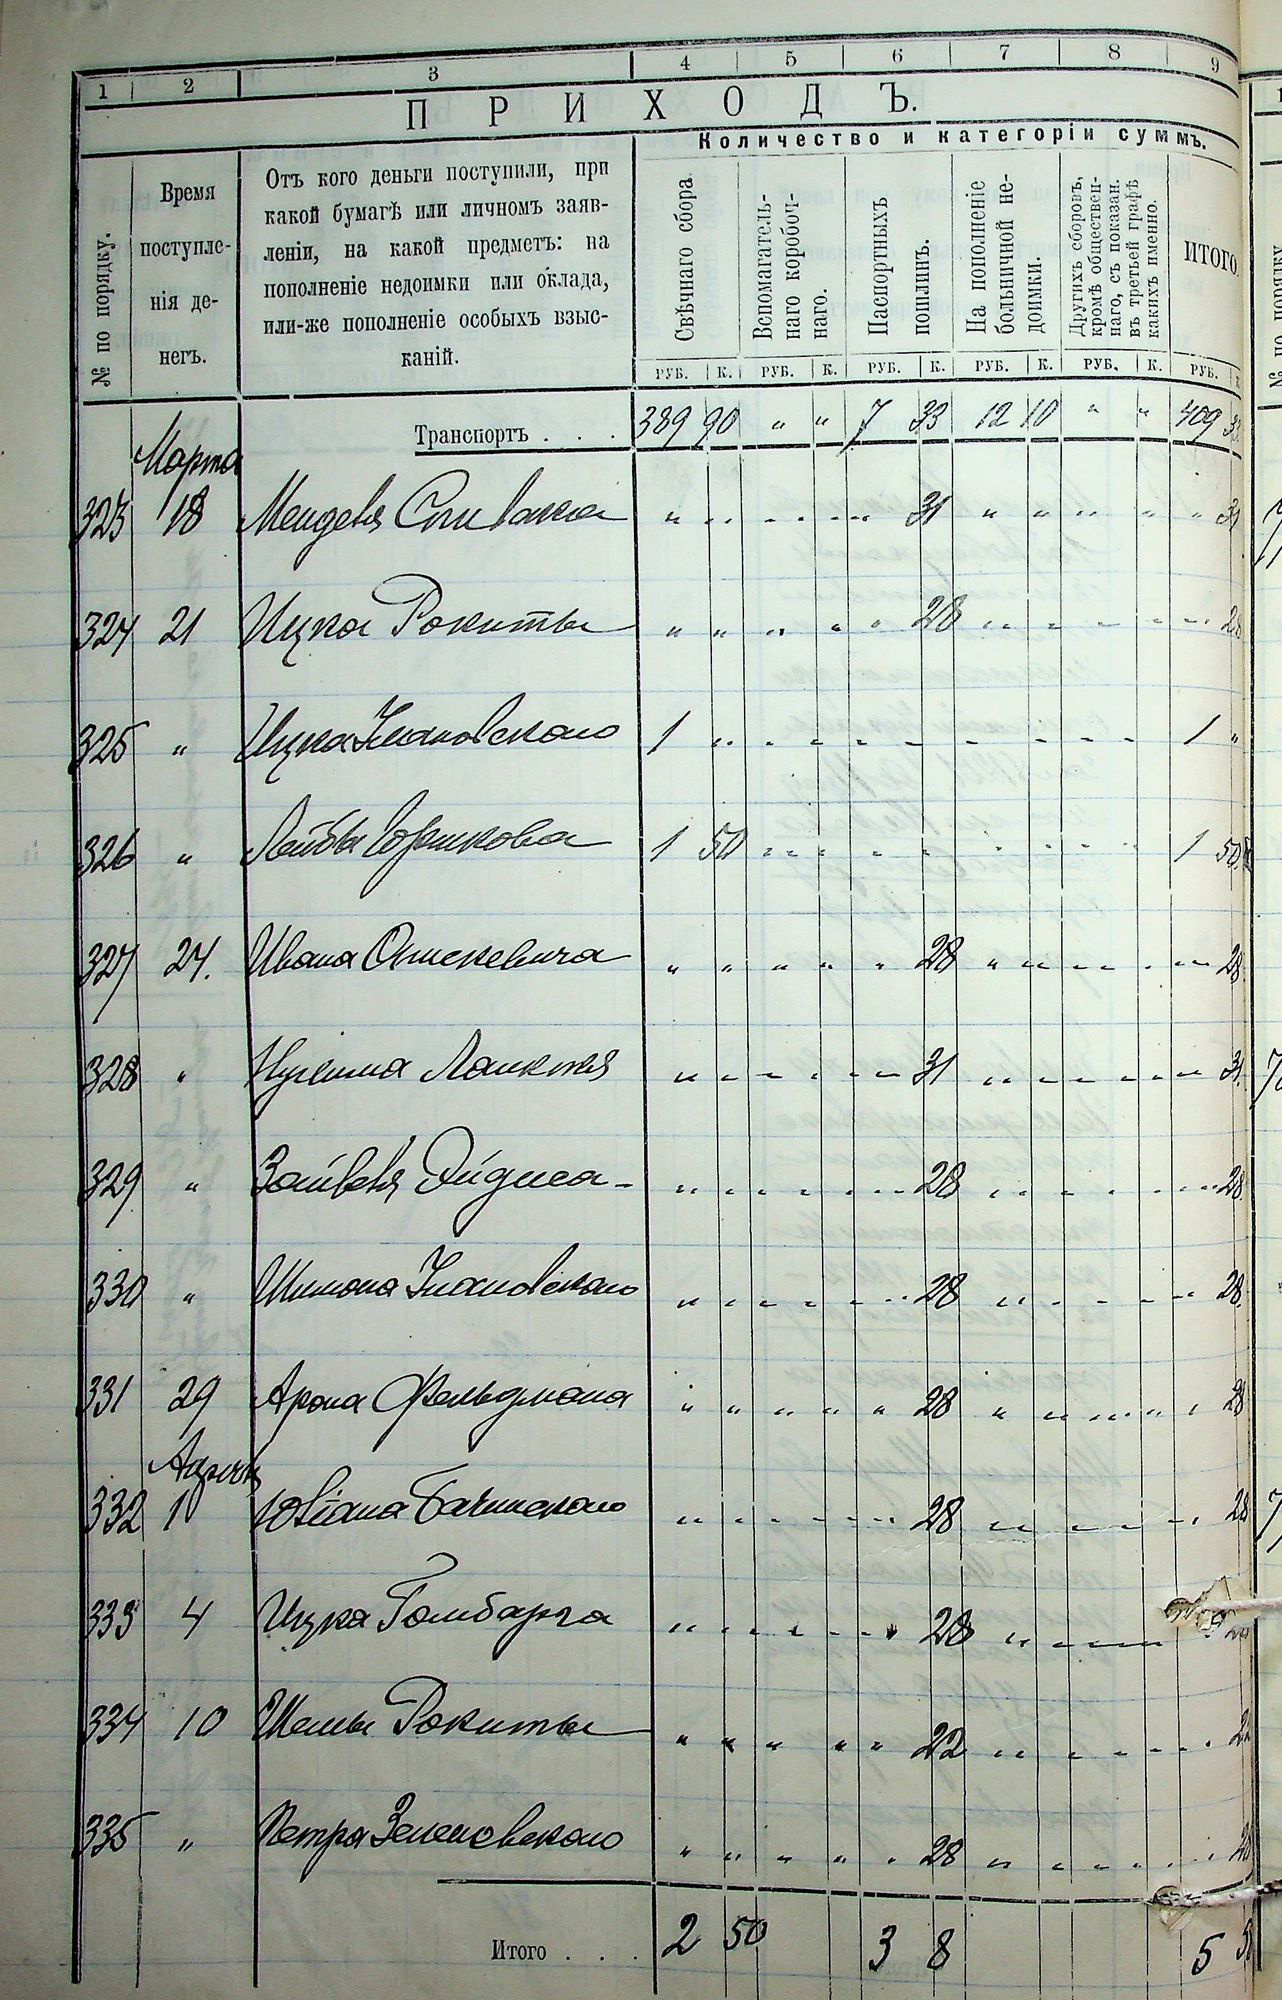 1 2 3 4 5 6 7 8 9
ПРИХОДЪ.
Количество и категоріи суммъ.
№ по порядку.
Время
поступле-
нія де-
негъ.
Отъ кого деньги поступили, при
какой бумагѣ или личномъ заяв-
леніи, на какой предметъ: на
пополненіе недоимки или оклада,
или-же пополненіе особыхъ взыс-
каній.
Свѣчнаго сбора.
Вспомагатель-
наго коробоч-
наго.
Паспортныхъ
пошлинъ.
На пополненіе
больничной не-
доимки.
Другихъ сборовъ,
кромѣ обществен-
наго, съ показан.
въ третьей графѣ
какихъ именно.
ИТОГО.
РУБ. К. РУБ. К. РУБ. К. РУБ. К. РУБ. К. РУБ.
Транспортъ . . . 389 90 " " 7 33 12 10 " " 409 33
Марта
323 18 Менделя Спивака " " " " " 31 " " " " " 31
324 21 Ицка Рокиты " " " " " 28 " " " " " 28
325 " Ицка Улановского 1 " " " " " " " " " 1 "
326 " Лейбы Горшкова 1 50 " " " " " " " " 1 50
327 24. Ивана Онискевича " " " " " 28 " " " " " 28
328 " " " " " " 31 " " " " " 31
329 " Зайвеля " " " " " 28 " " " " " 28
330 " Шимона Улановского " " " " " 28 " " " " " 28
331 29 Арона Фельдмана " " " " " 28 " " " " " 28
332 1 " " " " " 28 " " " " " 28
333 4 Ицка Гомбарга " " " " " 28 " " " " " 28
334 10 Шемы Рокиты " " " " " 22 " " " " " 22
335 " Петра Зелековского " " " " " 28 " " " " " 28
Итого . . . 2 50 3 8 5